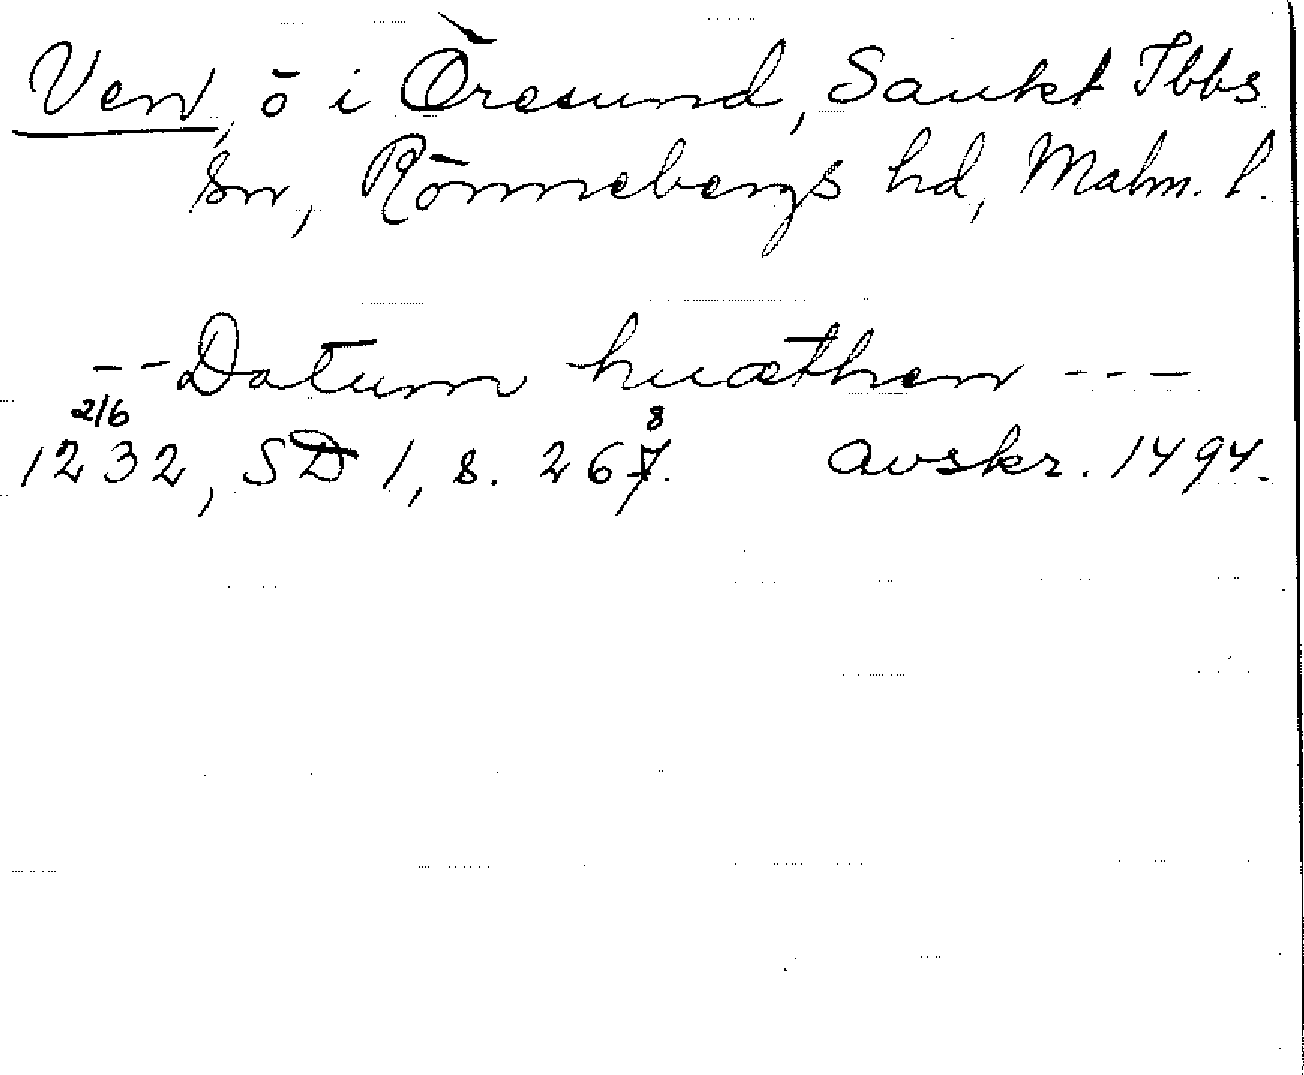 Ven, ö i Öresund, Sankt Ibbs
sn, Rönnebergs hd, Malm. l.
-- Datum huæthen ---
2/6 8
1232, SD 1, s. 267. avskr. 1494.